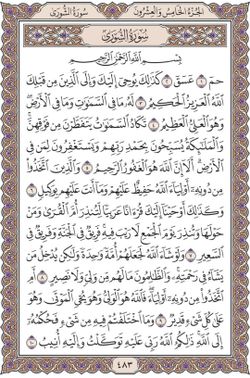 الجُزْءُ الخَامِسُ وَالعِشْرُونَ
سُورَةُ الشُّورَىٰ
سُورَةُ الشُّورَىٰ
بِسْمِ اللَّهِ الرَّحْمَٰنِ الرَّحِيمِ
حمٓ ١ عٓسٓقٓ ٢ كَذَٰلِكَ يُوحِىٓ إِلَيْكَ وَإِلَى ٱلَّذِينَ مِن قَبْلِكَ
ٱللَّهُ ٱلْعَزِيزُ ٱلْحَكِيمُ ٣ لَهُۥ مَا فِى ٱلسَّمَٰوَٰتِ وَمَا فِى ٱلْأَرْضِ
وَهُوَ ٱلْعَلِىُّ ٱلْعَظِيمُ ٤ تَكَادُ ٱلسَّمَٰوَٰتُ يَتَفَطَّرْنَ مِن فَوْقِهِنَّ
وَٱلْمَلَٰٓئِكَةُ يُسَبِّحُونَ بِحَمْدِ رَبِّهِمْ وَيَسْتَغْفِرُونَ لِمَن فِى
ٱلْأَرْضِ أَلَآ إِنَّ ٱللَّهَ هُوَ ٱلْغَفُورُ ٱلرَّحِيمُ ٥ وَٱلَّذِينَ ٱتَّخَذُوا۟
مِن دُونِهِۦٓ أَوْلِيَآءَ ٱللَّهُ حَفِيظٌ عَلَيْهِمْ وَمَآ أَنتَ عَلَيْهِم بِوَكِيلٍ ٦
وَكَذَٰلِكَ أَوْحَيْنَآ إِلَيْكَ قُرْءَانًا عَرَبِيًّا لِّتُنذِرَ أُمَّ ٱلْقُرَىٰ وَمَنْ
حَوْلَهَا وَتُنذِرَ يَوْمَ ٱلْجَمْعِ لَا رَيْبَ فِيهِ فَرِيقٌ فِى ٱلْجَنَّةِ وَفَرِيقٌ فِى
ٱلسَّعِيرِ ٧ وَلَوْ شَآءَ ٱللَّهُ لَجَعَلَهُمْ أُمَّةً وَٰحِدَةً وَلَٰكِن يُدْخِلُ مَن
يَشَآءُ فِى رَحْمَتِهِۦ وَٱلظَّٰلِمُونَ مَا لَهُم مِّن وَلِىٍّ وَلَا نَصِيرٍ ٨ أَمِ
ٱتَّخَذُوا۟ مِن دُونِهِۦٓ أَوْلِيَآءَ فَٱللَّهُ هُوَ ٱلْوَلِىُّ وَهُوَ يُحْىِ ٱلْمَوْتَىٰ وَهُوَ
عَلَىٰ كُلِّ شَىْءٍ قَدِيرٌ ٩ وَمَا ٱخْتَلَفْتُمْ فِيهِ مِن شَىْءٍ فَحُكْمُهُۥٓ
إِلَى ٱللَّهِ ذَٰلِكُمُ ٱللَّهُ رَبِّى عَلَيْهِ تَوَكَّلْتُ وَإِلَيْهِ أُنِيبُ ١٠
٤٨٣